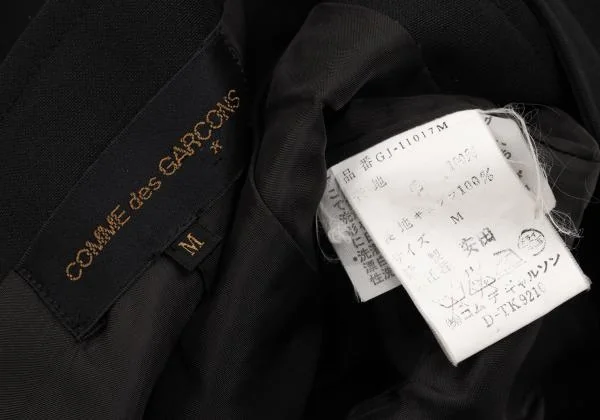 COMME des GARCONS
*
M
品番 GJ-11017M
表地 毛 100%
裏地 キュプラ100%
サイズ M
安田
㈱コム デ ギャルソン
D-TK9210